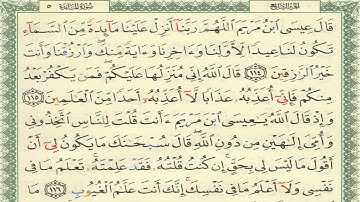 ٥ سورة المائدة الجزء السابع
قَالَ عِيسَى ٱبْنُ مَرْيَمَ ٱللَّهُمَّ رَبَّنَآ أَنزِلْ عَلَيْنَا مَآئِدَةً مِّنَ ٱلسَّمَآءِ
تَكُونُ لَنَا عِيدًا لِّأَوَّلِنَا وَءَاخِرِنَا وَءَايَةً مِّنكَ وَٱرْزُقْنَا وَأَنتَ
خَيْرُ ٱلرَّٰزِقِينَ ﴿١١٤﴾ قَالَ ٱللَّهُ إِنِّى مُنَزِّلُهَا عَلَيْكُمْ فَمَن يَكْفُرْ بَعْدُ
مِنكُمْ فَإِنِّىٓ أُعَذِّبُهُۥ عَذَابًا لَّآ أُعَذِّبُهُۥٓ أَحَدًا مِّنَ ٱلْعَٰلَمِينَ ﴿١١٥﴾
وَإِذْ قَالَ ٱللَّهُ يَٰعِيسَى ٱبْنَ مَرْيَمَ ءَأَنتَ قُلْتَ لِلنَّاسِ ٱتَّخِذُونِى
وَأُمِّىَ إِلَٰهَيْنِ مِن دُونِ ٱللَّهِ قَالَ سُبْحَٰنَكَ مَا يَكُونُ لِىٓ أَنْ
أَقُولَ مَا لَيْسَ لِى بِحَقٍّ إِن كُنتُ قُلْتُهُۥ فَقَدْ عَلِمْتَهُۥ تَعْلَمُ مَا فِى
نَفْسِى وَلَآ أَعْلَمُ مَا فِى نَفْسِكَ إِنَّكَ أَنتَ عَلَّٰمُ ٱلْغُيُوبِ ﴿١١٦﴾ مَا